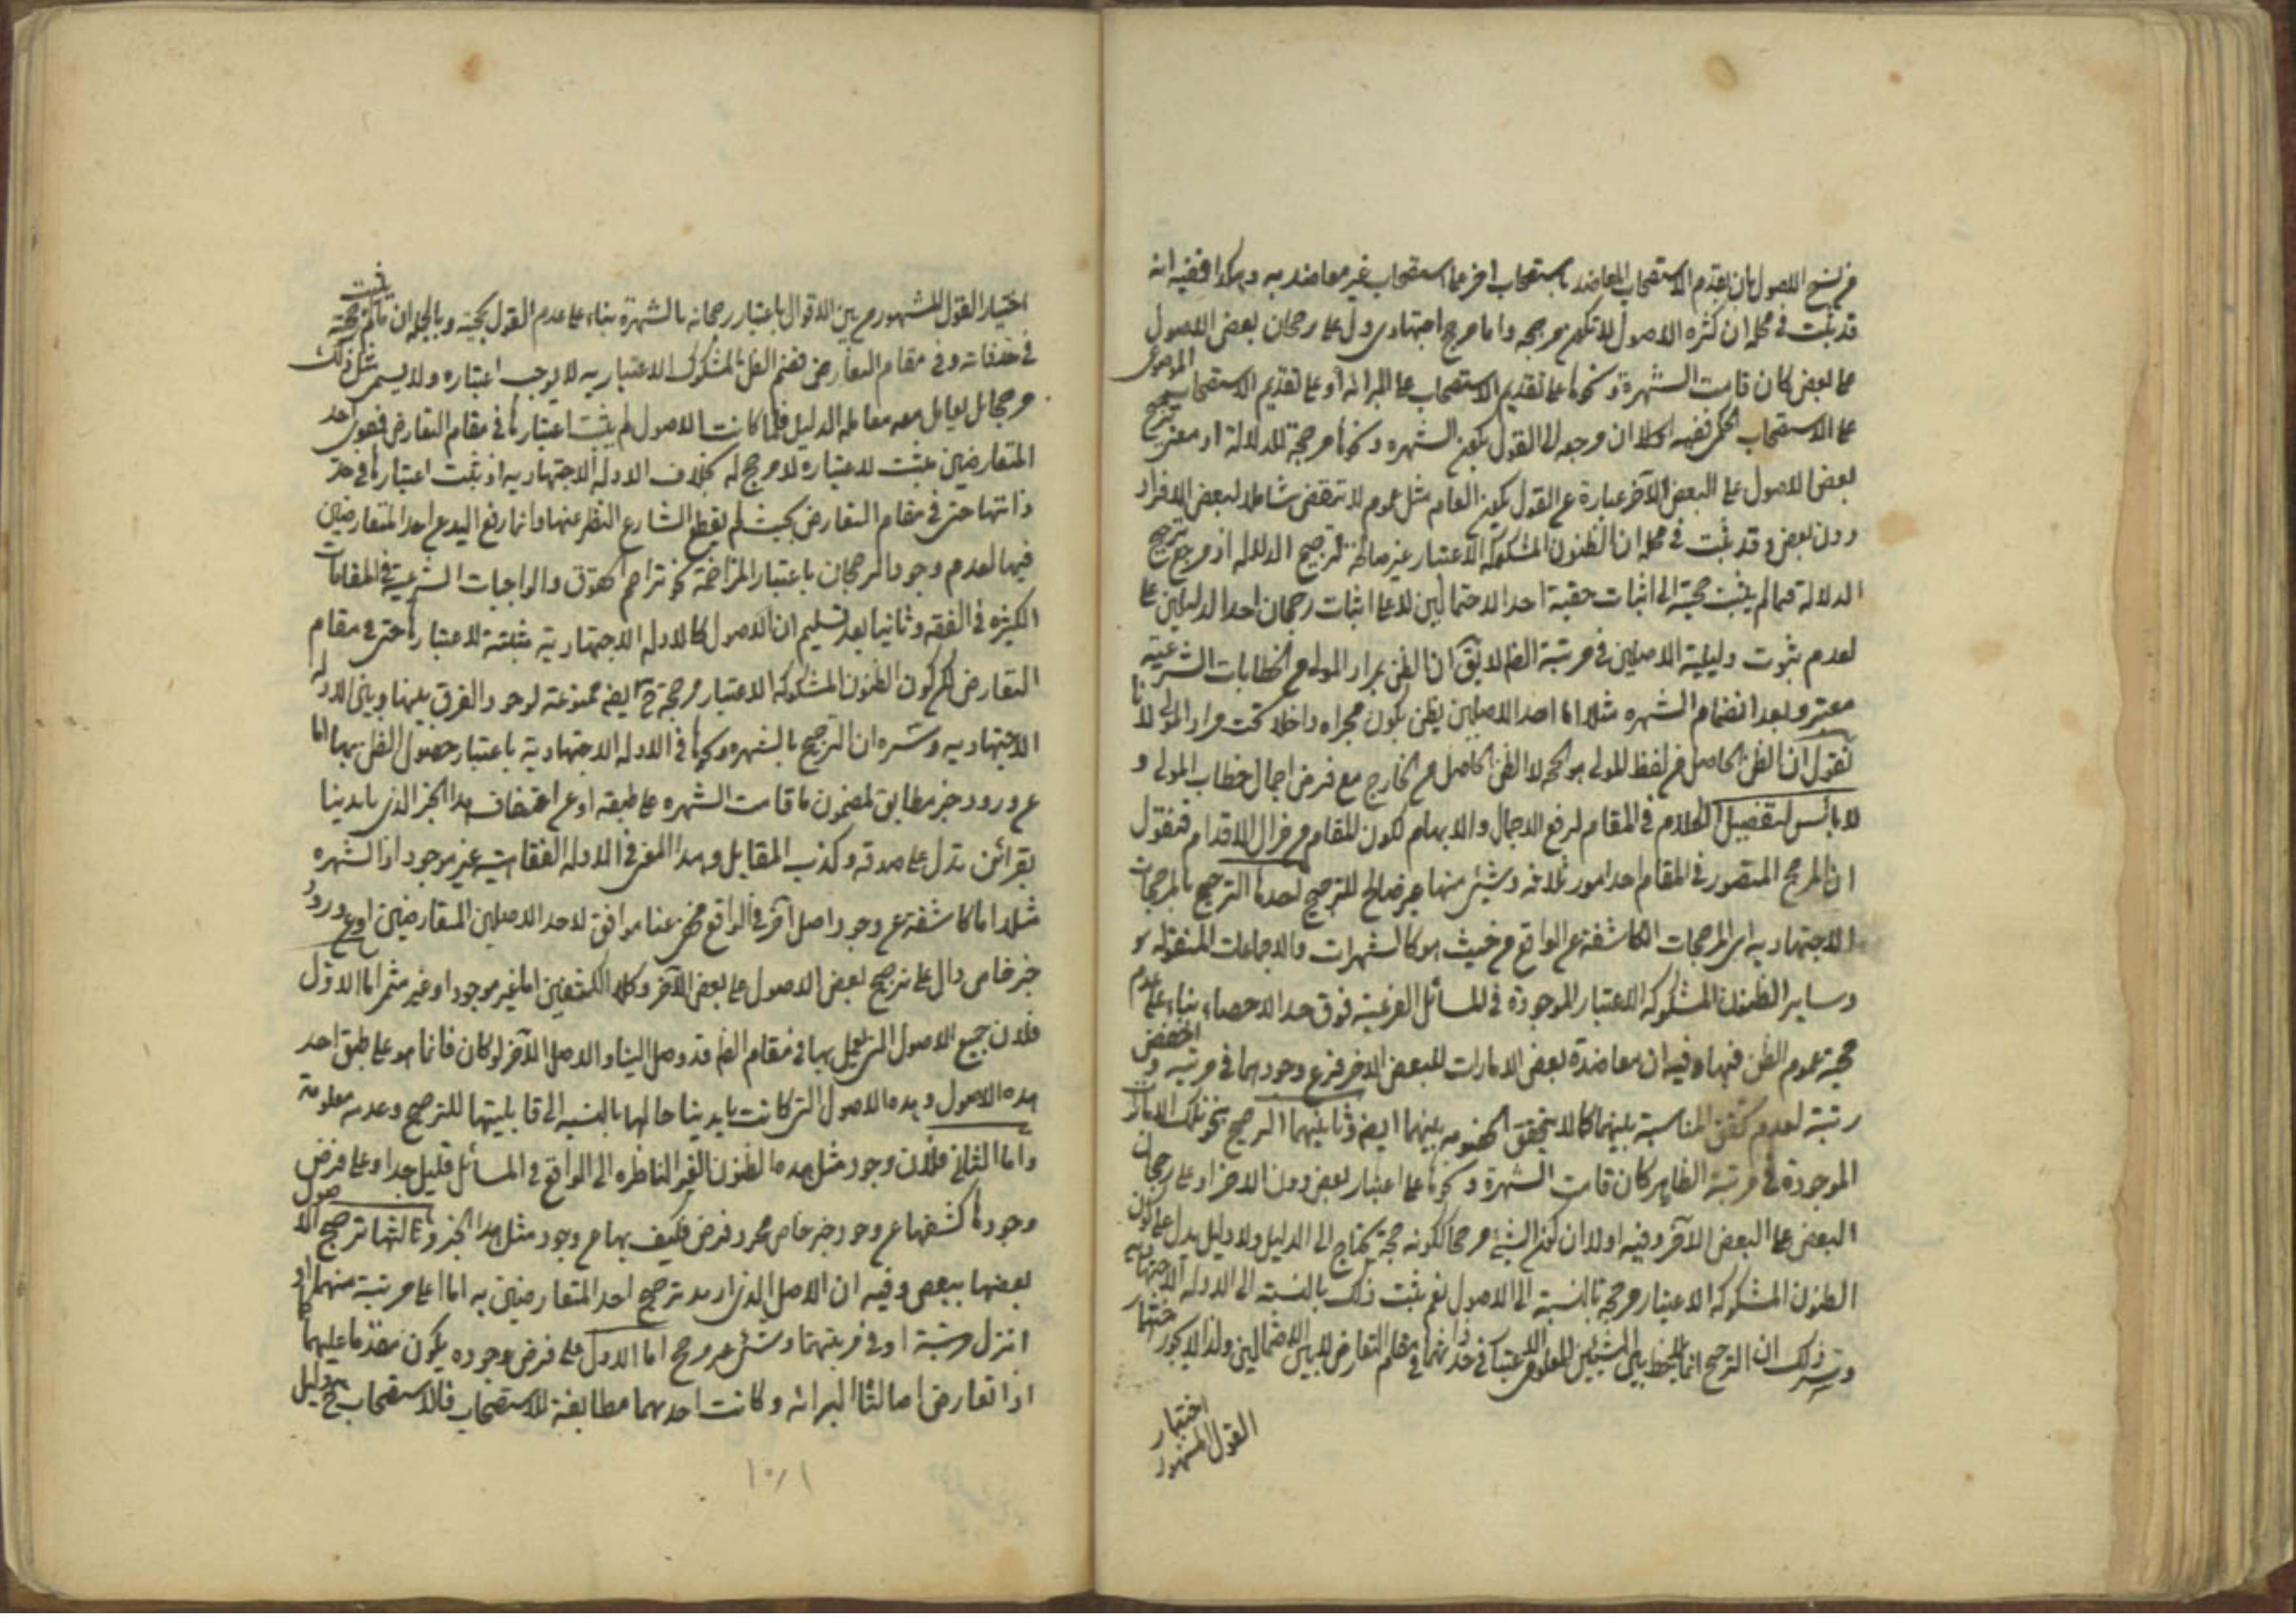 من سنخ الاصول بان يقدم الاستصحاب المعاضد باستصحاب اخر على استصحاب غير معاضد به وهكذا ففيه انه
قد ثبت في محله ان كثرة الاصول لا تكون مرجحه واما مرجح اجتهادي دل على رجحان بعض الاصول
على بعض كان قامت الشهرة ونحوها على تقديم الاستصحاب على البرائة أو على تقديم الاستصحاب الموضوعى
على الاستصحاب الحكمى ففيه اولا ان مرجعه الى القول بكون الشهره ونحوها مرجحة للدلالة اذ معنى ترجيح
بعض الاصول على البعض الآخر عبارة عن القول بكون العام مثل عموم لا تنقض شاملا لبعض الافراد
دون بعض وقد ثبت في محله ان الظنون المشكوكة الاعتبار غير صالحة لترجيح الدلاله اذ مرجع ترجيح
الدلالة فيما لم يثبت حجيته الى اثبات حقية احد الاحتمالين لا على اثبات رجحان احد الدليلين على
لعدم ثبوت دليلية الاصلين في مرتبة الظ لا يق ان الظن بمراد المولى من الخطابات الشرعية
معتبر وبعد انضمام الشهره مثلا الى احد الاصلين يظن بكون مجراه داخلا تحت مراد المولى لانا
نقول ان الظن الحاصل من لفظ المولى هو الحجه لا الظن الحاصل من الخارج مع فرض اجمال خطاب المولى و
لا بائس لتفصيل الكلام في المقام لرفع الاجمال والابهام لكون المقام من مزال الاقدام فنقول
ان المرجح المتصور في المقام احد امور ثلاثه وشيئ منها غير صالح للترجيح احدها الترجيح بالمرجحات
الاجتهاديه اى المرجحات الكاشفة عن الواقع من حيث هو كالشهرات والاجماعات المنقوله
وساير الظنون المشكوكه الاعتبار الموجودة في المسائل الفرعية فوق حد الاحصاء بناء على عدم
حجية عموم الظن فيها وفيه ان معاضدة بعض الامارات للبعض الاخر فرع وجودهما في مرتبه و
رتبة لعدم تحقق المناسبة بينهما كما لا يتحقق الخصومه بينهما ايضا وثانيهما الترجيح بنحو تلك الامارات
الموجودة في مرتبة الظاهر كان قامت الشهرة ونحوها على اعتبار بعض دون الاخر او على رجحان
البعض على البعض الآخر وفيه اولا ان كون الشيئ مرجحا ككونه حجة يحتاج الى الدليل ولا دليل يدل على كون
الظنون المشكوكه الاعتبار مرجحه بالنسبة الى الاصول نعم يثبت ذلك بالنسبة الى الادله الاجتهاديه
وسر ذلك ان الترجيح انما يلاحظ بين الشيئين المعلومى الاعتبار في حد ذاتهما في مقام التعارض لا بين الاحتمالين ولذا لا يجوز
اختيار
القول المشهور
اختيار القول المشهور من بين الاقوال باعتبار رجحانه بالشهرة بناء على عدم القول بحجيته وبالجمله ان ما لم يثبت حجيته
في حد ذاته وفي مقام التعارض فضم الظن المشكوك الاعتبار به لا يوجب اعتباره ولا يسمى مثل ذلك
مرجحا بل يعامل معه معامله الدليل فلما كانت الاصول لم يثبت اعتبارها في مقام التعارض فتقوى احد
المتعارضين مثبت لاعتباره لا مرجح له بخلاف الادله الاجتهاديه اذ يثبت اعتبارها في حد
ذاتها حتى في مقام التعارض بحيث لم يقطع الشارع النظر عنها وانما رفع اليد عن احد المتعارضين
فيها لعدم وجود الرجحان باعتبار المزاحمة نحو تزاحم الحقوق والواجبات الشرعية في المقامات
الكثيره في الفقه وثانيا بعد تسليم ان الاصول كالادله الاجتهادية مثبتة الاعتبار حتى في مقام
التعارض لكن كون الظنون المشكوكه الاعتبار مرجحة ح ايضا ممنوعة لوجود الفرق بينها وبين الادله
الاجتهاديه وسره ان الترجيح بالشهره ونحوها في الادله الاجتهادية باعتبار حصول الظن بهما اما
عن ورود خبر مطابق لمضمون ما قامت الشهره على طبقه او عن احتفاف هذا الخبر الذى بايدينا
بقرائن تدل على صدقه وكذب المقابل وهذا المعنى في الادله الفقاهتيه غير موجود اذ الشهره
مثلا اما كاشفة عن وجود اصل آخر في الواقع مخفي عنا موافق لاحد الاصلين المتعارضين او عن ورود
خبر خاص دال على ترجيح بعض الاصول على بعض الآخر وكلا الكشفين اما غير موجود او غير مثمر اما الاول
فلان جميع الاصول التى يعمل بها في مقام الظ قد وصل الينا والاصل الآخر لو كان فانما هو على طبق احد
هذه الاصول وهذه الاصول التى كانت بايدينا حالها بالنسبه الى قابليتها للترجيح وعدمه معلومة
واما الثانى فلان وجود مثل هذه الظنون الغير الناظره الى الواقع في المسائل قليل جدا وعلى فرض
وجودها كشفها عن وجود خبر خاص مجرد فرض فكيف بها عن وجود مثل هذا الخبر وثالثها ترجيح الاصول
بعضها ببعض وفيه ان الاصل الذى اريد ترجيح احد المتعارضين به اما اعلى مرتبة منهما او
انزل مرتبة او في مرتبتهما وشيئ غير مرجح اما الاول على فرض وجوده يكون مقدما عليهما كما
اذا تعارض اصالتا البرائه وكانت احدهما مطابقة للاستصحاب فالاستصحاب ح دليل